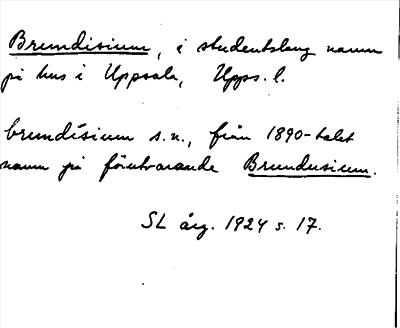 Brundisium, i studentslang namn
på hus i Uppsala, Upps. l.
brundísium s.n., från 1890-talet
namn på förutvarande Brundusium.
SL årg. 1924 s. 17.